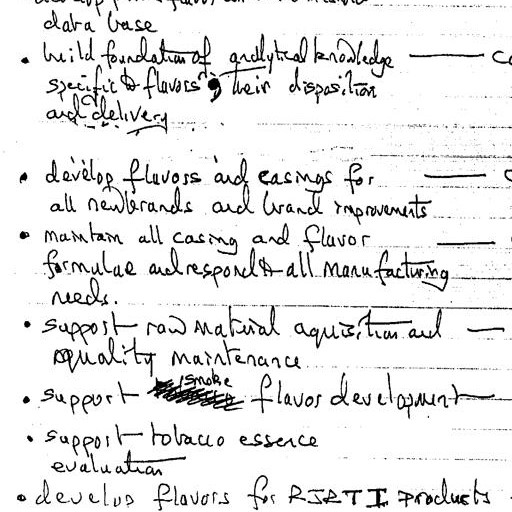 data base
• build foundation of analytical knowledge —
specific to flavors, their disposition
and delivery
• develop flavors and casings for —
all new brands and brand improvements
• maintain all casing and flavor —
formulae and respond to all manufacturing
needs.
• support raw material aquisition and —
quality maintenance
• support smoke flavor development —
• support tobacco essence
evaluation
• develop flavors for RJRTI products